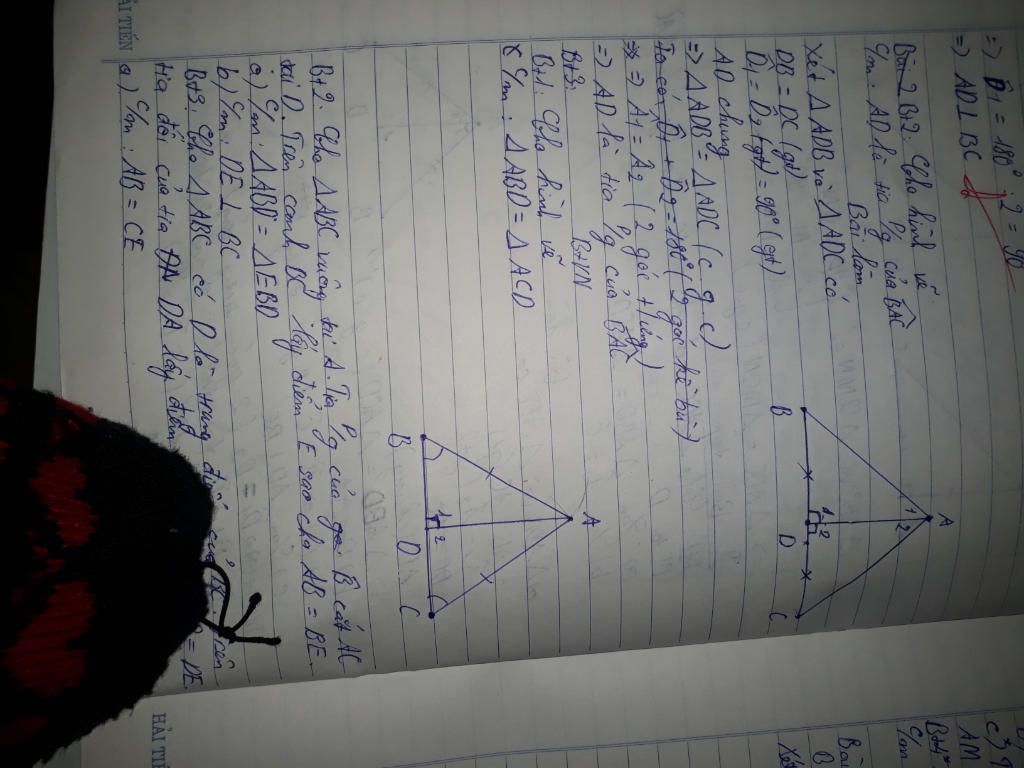 => D̂1 = 180° : 2 = 90
=> AD⊥BC
Bài 2 Bt2. Cho hình vẽ
C/m: AD là tia p/g của BAC
Bài làm
Xét ΔADB và ΔADC có
DB = DC (gt)
D̂1 = D̂2 (gt) = 90° (gt)
AD chung
=> ΔADB = ΔADC (c g c)
Ta có D̂1 + D̂2 = 180° (2 góc kề bù)
=> A1 = A2 (2 góc tứ)
=> AD là tia p/g của BAC
A
1 2
B
1 2
D
C
Bt3: BtVN
Bt1. Cho hình vẽ
C/m: ΔABD = ΔACD
A
B
1 2
D
C
Bt2: Cho ΔABC vuông tại A. Tia p/g của góc B cắt AC
tại D. Trên cạnh BC lấy điểm E sao cho AB = BE.
a) C/m: ΔABD = ΔEBD
b) C/m: DE⊥BC
Bt3. Cho ΔABC có D là trung điểm của
tia đối của tia DA lấy điểm = DE
a) C/m: AB = CE
HẢI TIẾN
HẢI TIẾ
Bt4
AM
C/m
Bài
Xét